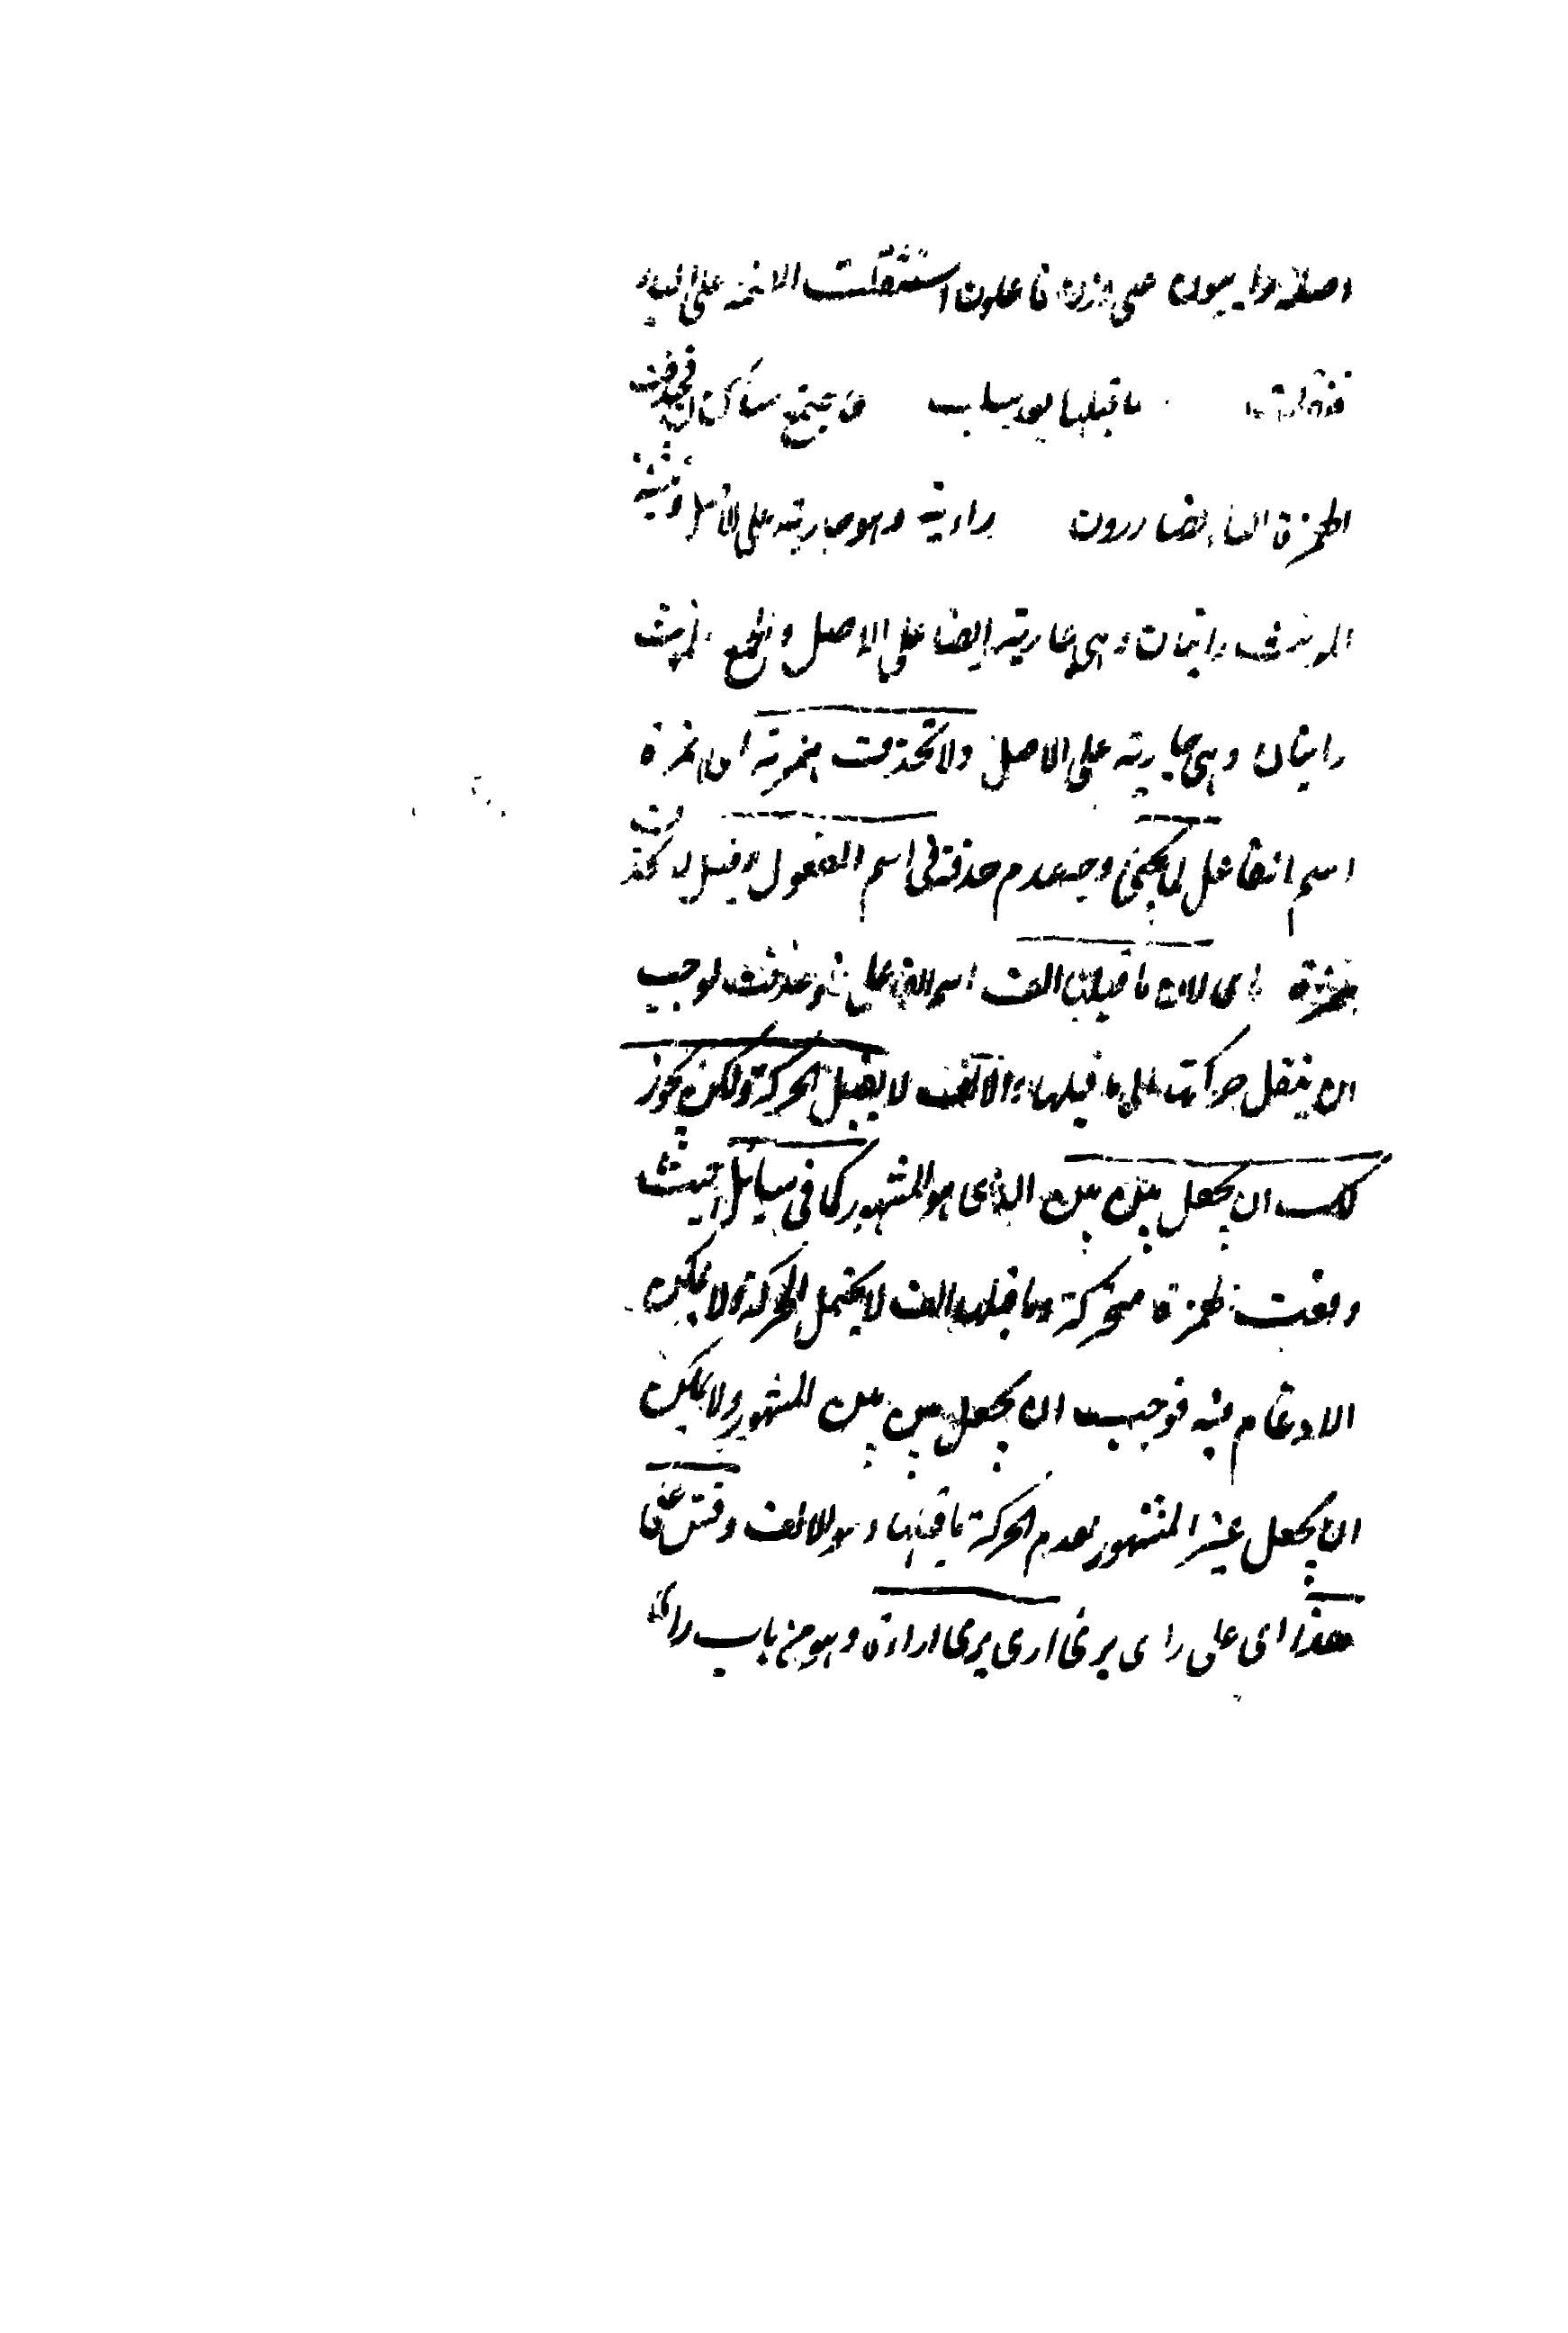 اصله رايبون على وزن فاعلون استثقلت الضمة على الياء
فنقلت ما قبلها بعد سلب فاجتمع ساكنان فحذفت
الهمزة راءية وهو جارية على الاصل وتثنية
المؤنث رايتان وهي جارية ايضا على الاصل والجمع
رايتان وهي جارية على الاصل ولا تحذف همزته اى همزة
اسم الفاعل لما يجئ وجه عدم حذفه في اسم المفعول وقيل لا تحذف
همزته اى لان ما قبلها الف اسم الفاعل فلو حذفت لوجب
ان ينقل حركتها الى ما قبلها والالف لا يقبل الحركة ولكن يجوز
لك ان يجعل بين بين الذى هو المشهور كما في سايل حيث
وقعت همزة متحركة وما قبلها الف لا يحتمل الحركة ولا يمكن
الادغام فيه فوجب ان يجعل بين بين المشهور ولا يمكن
ان يجعل غير المشهور لعدم الحركة ما قبلها وهو الالف وقس على
هذا اى على راى يرى ارى يرى اراءة وهو من باب